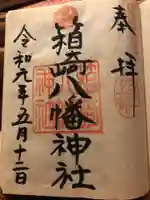 奉拝
箱崎八幡神社
令和元年五月十二日